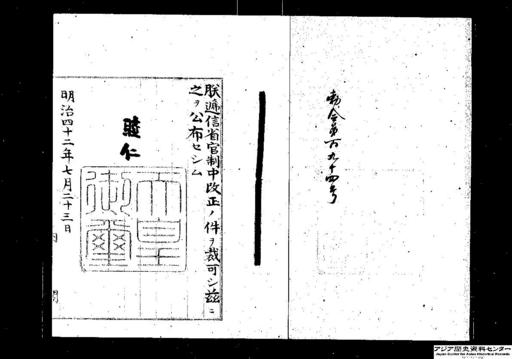 勅令第百九十四号
朕遞信省官制中改正ノ件ヲ裁可シ茲ニ
之ヲ公布セシム
睦仁
天皇
御璽
明治四十二年七月二十三日
内閣
アジア歴史資料センター
Japan Center for Asian Historical Records